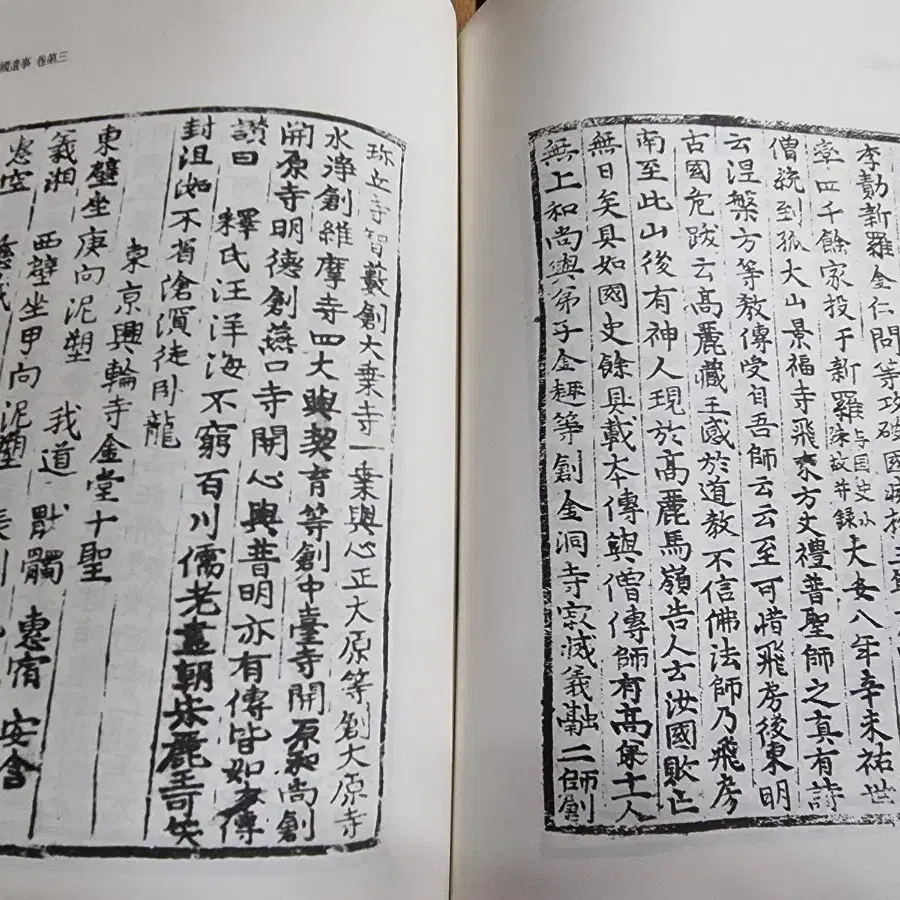 李勣新羅金仁問等攻破國
率四千餘家投于新羅与国史小殊故并錄大安八年辛未祐世
僧統到孤大山景福寺飛來方丈禮普聖師之真有詩
云涅槃方等教傳受自吾師云云至可惜飛房後東明
古國危跋云高麗藏王感於道教不信佛法師乃飛房
南至此山後有神人現於高麗馬嶺告人云汝國敗亡
無日矣具如國史餘具載本傳與僧傳師有高弟十一人
無上和尚與弟子金趣等創金洞寺寂滅義融二師創
國遺事 卷第三
珍丘寺智藪創大乗寺一乗與心正大原等創大原寺
水淨創維摩寺四大與契育等創中臺寺開原和尚創
開原寺明德創燕口寺開心與普明亦有傳皆如本傳
讃曰 釋氏汪洋海不窮百川儒老盡朝宗麗王可笑
封沮洳不省滄溟徒卧龍
東京興輪寺金堂十聖
東壁坐庚向泥塑 我道 猒髑 惠宿 安含
義湘 西壁坐甲向泥塑 表訓
惠空